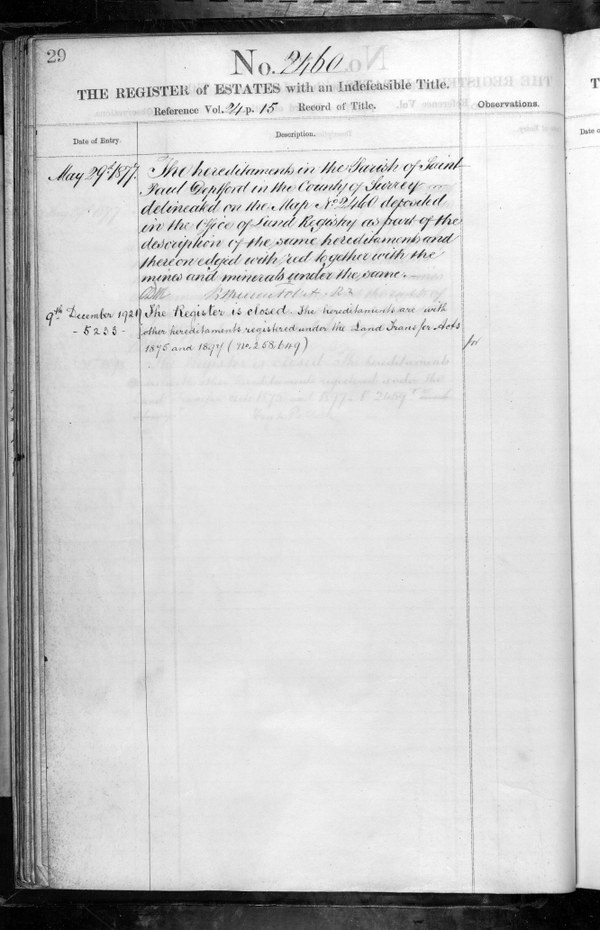 29
No. 2460
THE REGISTER of ESTATES with an Indefeasible Title.
Reference Vol. 24 p. 15 Record of Title.
Observations.
Date of Entry.
Description.
May 29th 1877.
The hereditaments in the Parish of Saint
Paul Deptford in the County of Surrey
delineated on the Map No. 2460 deposited
in the Office of Land Registry as part of the
description of the same hereditaments and
thereon edged with red together with the
mines and minerals under the same.
9th December 1921
- 5233 -
The Register is closed. The hereditaments are with
other hereditaments registered under the Land Transfer Acts
1875 and 1897 (No. 258649)